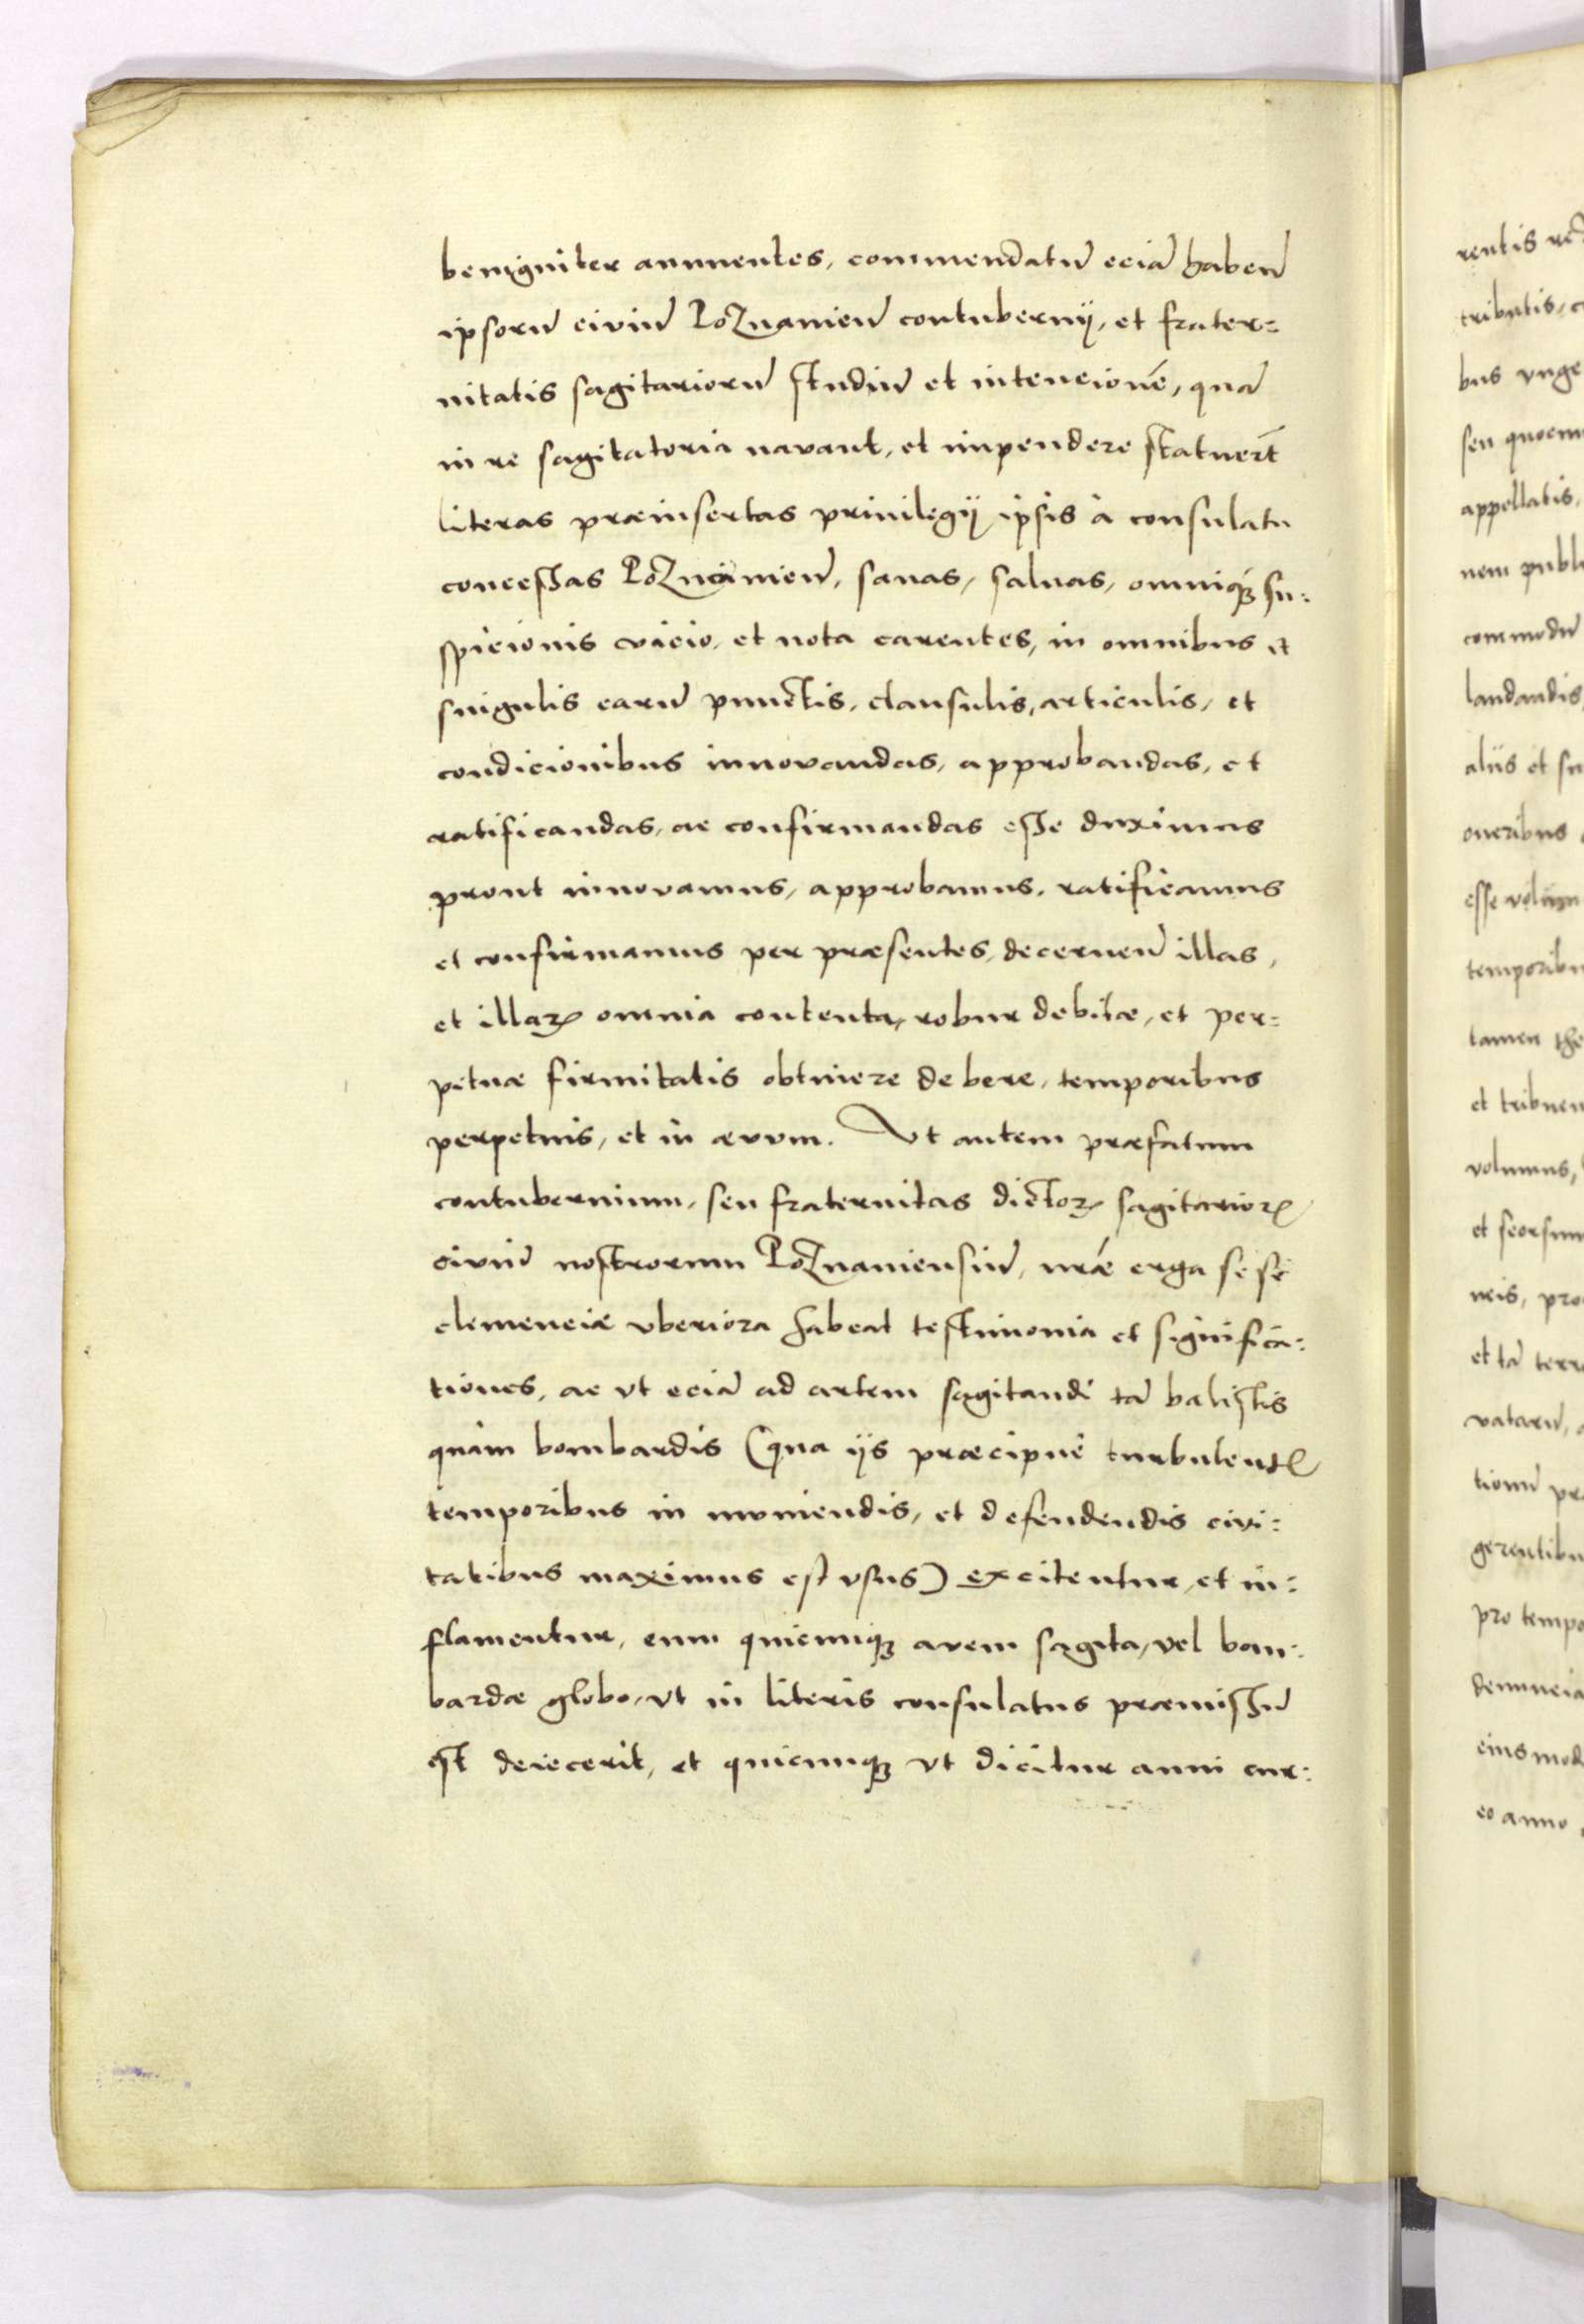 benigniter annuentes, commendatū eciā habeñ
ipsorū civiū Poznanieñ contubernij, et frater=
nitatis sagitariorū studiū et intencionē, quā
in re sagitatoria navant, et impendere statuerūt
literas præinsertas privilegij ipsis à consulatu
concessas Poznanieñ, sanas, saluas, omniqꝫ su=
spicionis vicio, et nota carentes, in omnibus et
singulis earū punctis, clausulis, articulis, et
condicionibus innovandas, approbandas, et
ratificandas, ac confirmandas esse duximus
prout innovamus, approbamus, ratificamus
et confirmamus per præsentes, decerneñ illas,
et illaꝝ omnia contenta, robur debitæ, et per=
petuæ firmitatis obtinere debere, temporibus
perpetuis, et in ævum. Ut autem præfatum
contubernium, seu fraternitas dictoꝝ sagitarioꝝ
civiū nostrorum Poznaniensiū, nrǣ erga sese
clemenciæ vberiora habeat testimonia et significa=
tiones, ac vt eciā ad artem sagitandi tā balistis
quàm bombardis (qua ijs præcipuè turbulentꝭ
temporibus in muniendis, et defendendis civi=
tatibus maximus est vsus) excitentur, et in=
flamentur, eum quicunqꝫ avem sagita, vel bom=
bardæ globo, vt in literis consulatus præmissū
est deiecerit, et quicunqꝫ vt dicitur anni cur=
rentis
tribulis,
bus vnge
seu quocun
appellatis,
nem publi
commodū
laudandis,
alijs et su
oneribus
esse volum
temporibu
tamen
et tribuen
volumus,
et seorsum
pro
et tā terr
vatarū,
tionū
gerentibu
pro tempo
denuncia
eiusmod
eo anno